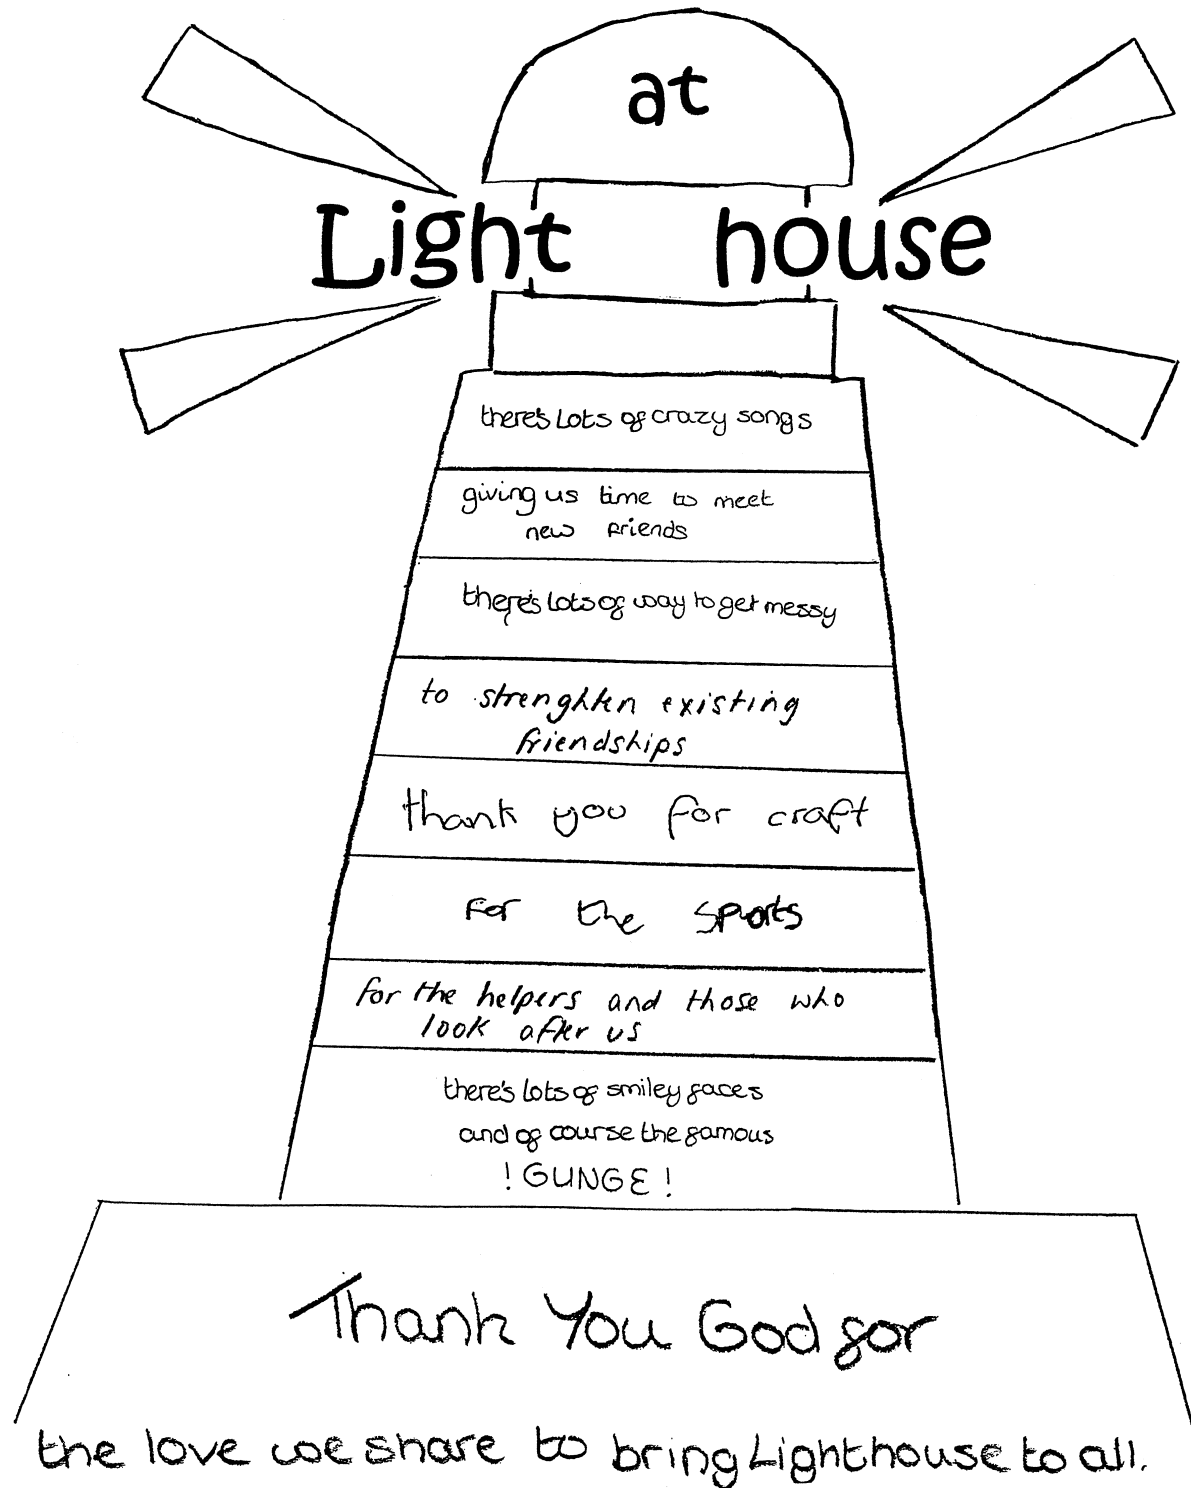 at
Light house
there's lots of crazy songs
giving us time to meet
new friends
there's lots of way to get messy
to strenghten existing
friendships
thank you for craft
for the sports
for the helpers and those who
look after us
there's lots of smiley faces
and of course the famous
! GUNGE !
Thank You God for
the love we share to bring Lighthouse to all.